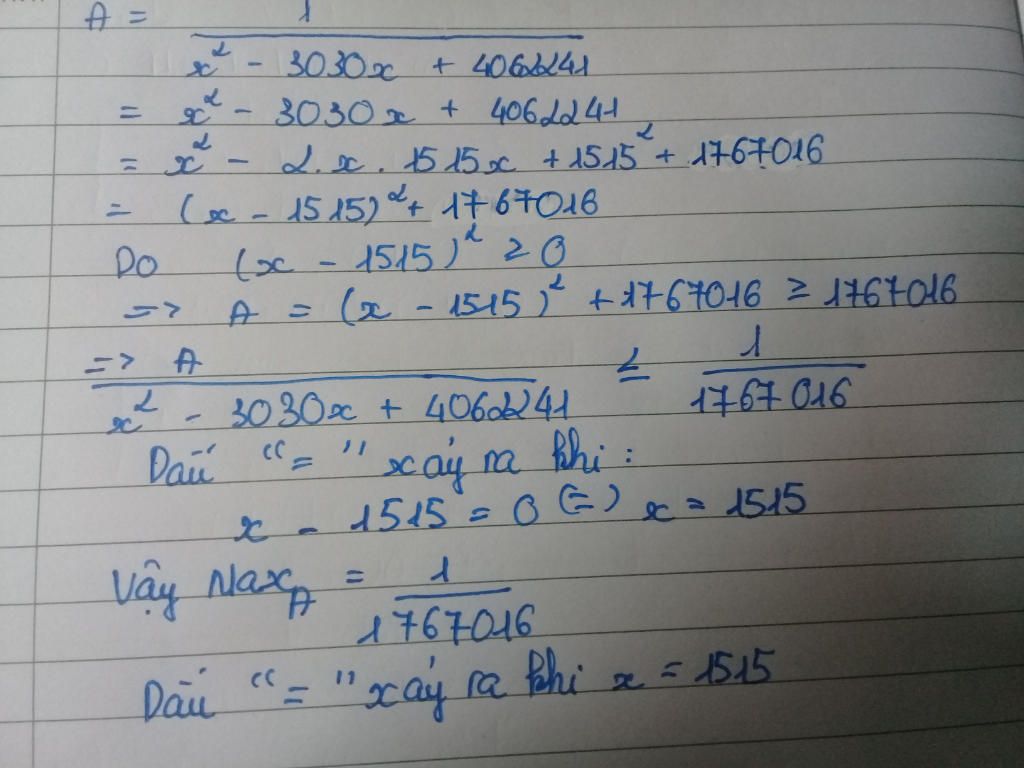 A = 1
x² - 3030x + 4062241
= x² - 3030x + 4062241
= x² - 2.x.1515x + 1515² + 1767016
= (x - 1515)² + 1767016
Do (x - 1515)² ≥ 0
=> A = (x - 1515)² + 1767016 ≥ 1767016
=> A ≤ 1
x² - 3030x + 4062241 1767016
Dấu "=" xảy ra khi :
x - 1515 = 0 (=) x = 1515
Vậy Max A = 1
1767016
Dấu "=" xảy ra khi x = 1515